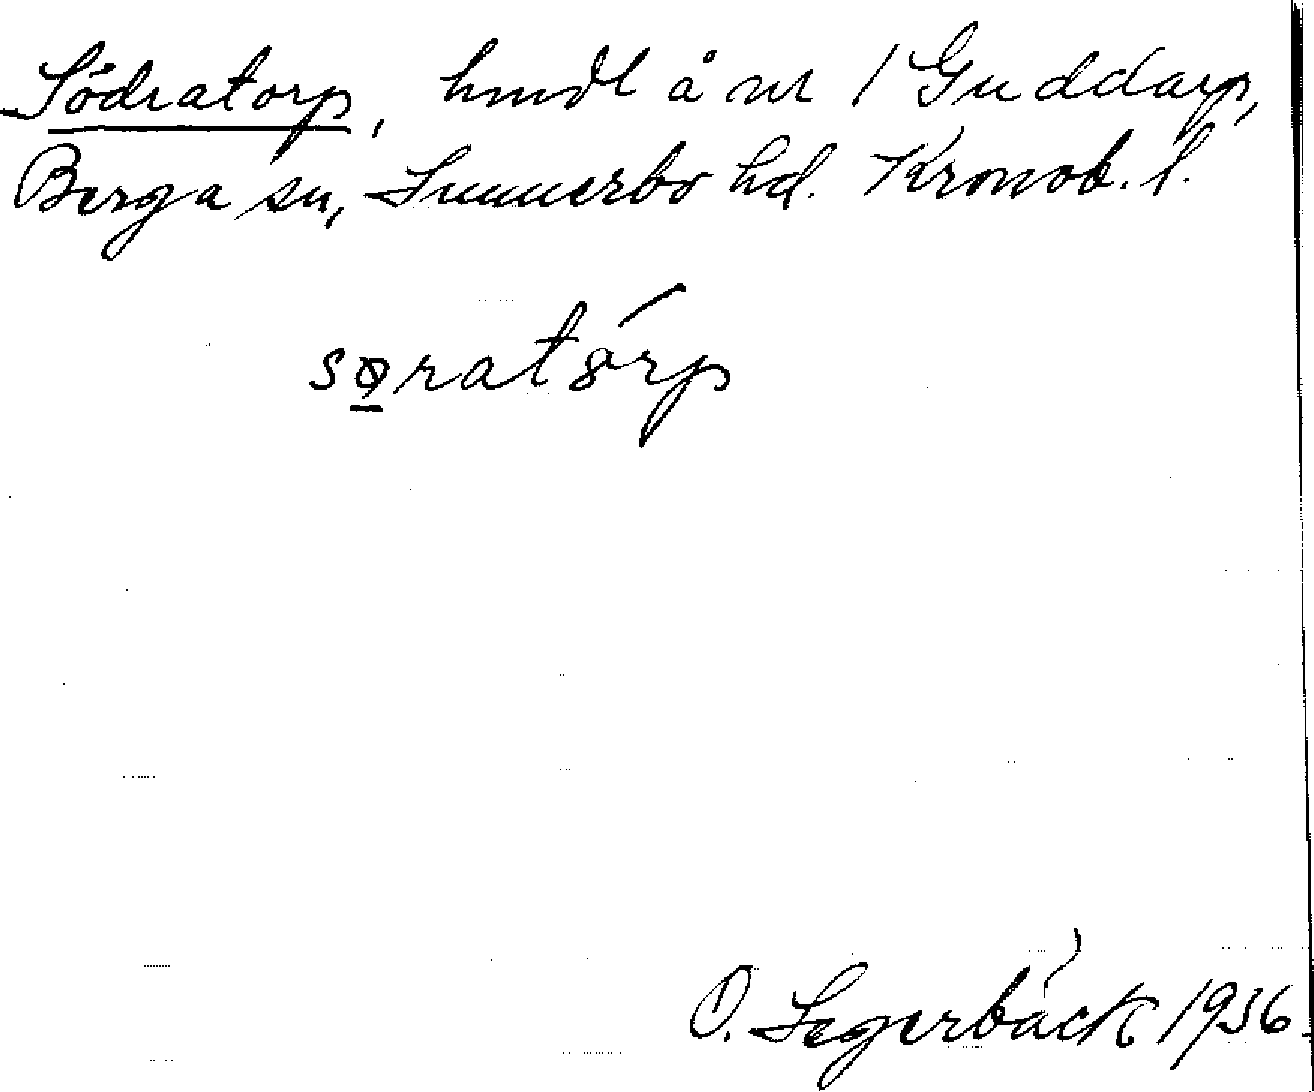 Södratorp, hmdl å nr 1 Guddarp,
Berga sn, Sunnerbo hd. Kronob. l.
søratórp
O. Segerbäck 1936